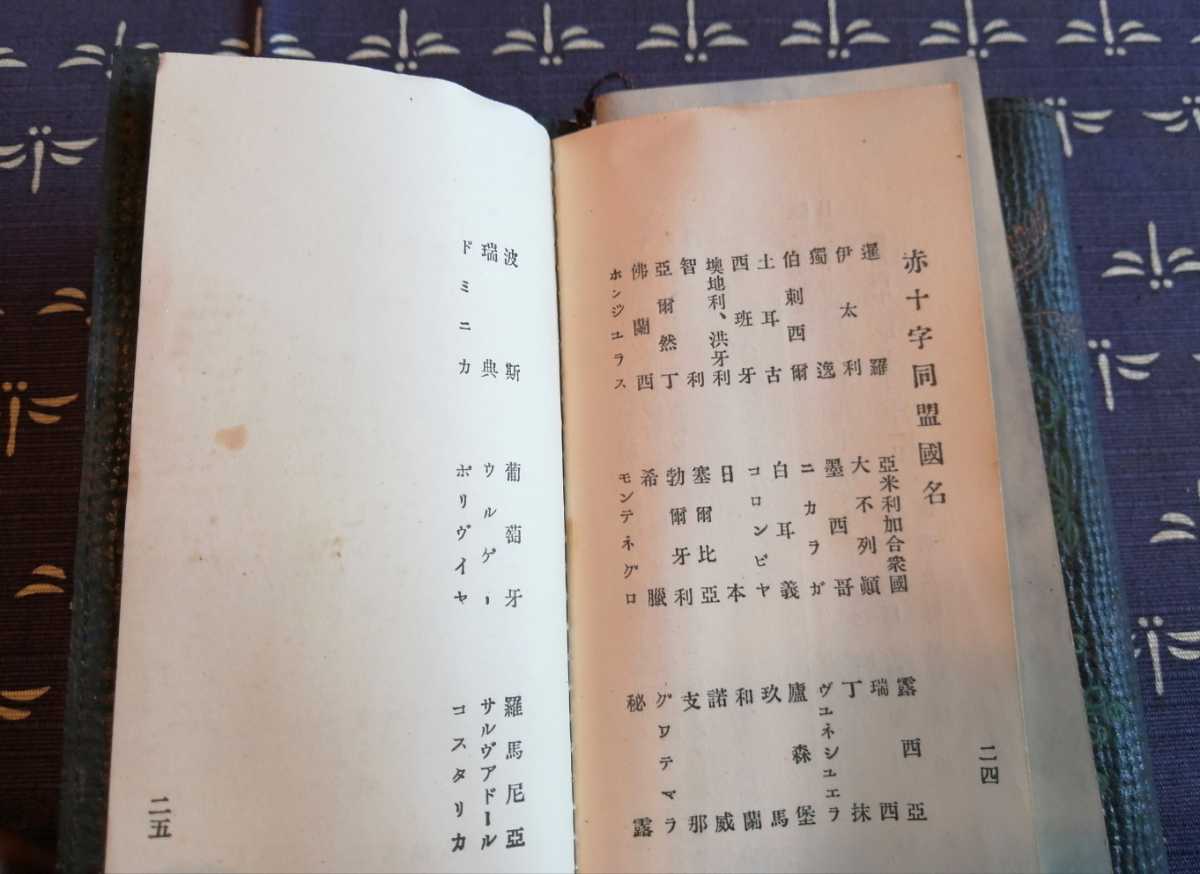 二四
赤十字同盟國名
暹羅 亞米利加合衆國 露西亞
伊太利 大不列顛 瑞西
獨逸 墨西哥 丁抹
伯剌西爾 ニカラガ ヴエネシユエラ
土耳古 白耳義 盧森堡
西班牙 コロンビヤ 玖馬
墺地利、洪牙利 日本 和蘭
智利 塞爾比亞 諾威
亞爾然丁 勃爾牙利 支那
佛蘭西 希臘 グワテマラ
ホンジユラス モンテネグロ 秘露
波斯 葡萄牙 羅馬尼亞
瑞典 ウルゲー サルヴアドール
ドミニカ ボリヴイヤ コスタリカ
二五